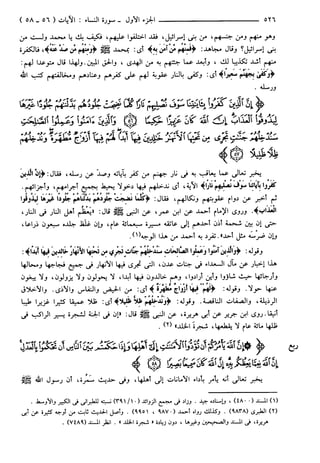 ٥٢٦ الجزء الأول - سورة النساء : الآيات ( ٥٦ - ٥٨ )
وهو منهم ومن جنسهم، من بني إسرائيل، فقد اختلفوا عليهم، فكيف بك يا محمد ولست من
بني إسرائيل؟ وقال مجاهد: ﴿فمنهم من آمن به﴾ أي: بمحمد ﷺ ﴿ومنهم من صد عنه﴾، فالكفرة
منهم أشد تكذيبا لك ، وأبعد عما جئتهم به من الهدى ، والحق المبين. ولهذا قال متوعدا لهم:
﴿وكفى بجهنم سعيرا﴾ أي: وكفى بالنار عقوبة لهم على كفرهم وعنادهم ومخالفتهم كتب الله
ورسله .
﴿إن الذين كفروا بآياتنا سوف نصليهم نارا كلما نضجت جلودهم بدلناهم جلودا غيرها ليذوقوا
العذاب إن الله كان عزيزا حكيما ۝ والذين آمنوا وعملوا الصالحات
سندخلهم جنات تجري من تحتها الأنهار خالدين فيها أبدا لهم فيها أزواج مطهرة وندخلهم ظلا
ظليلا ۝﴾
يخبر تعالى عما يعاقب به في نار جهنم من كفر بآياته وصد عن رسله، فقال: ﴿إن الذين
كفروا بآياتنا سوف نصليهم نارا﴾ الآية، أي ندخلهم فيها دخولا يحيط بجميع أجرامهم، وأجزائهم.
ثم أخبر عن دوام عقوبتهم ونكالهم، فقال: ﴿كلما نضجت جلودهم بدلناهم جلودا غيرها ليذوقوا
العذاب﴾. وروى الإمام أحمد عن ابن عمر، عن النبي ﷺ قال: «يعظم أهل النار في النار،
حتى إن بين شحمة أذن أحدهم إلى عاتقه مسيرة سبعمائة عام، وإن غلظ جلده سبعون ذراعا،
وإن ضرسه مثل أحد». تفرد به أحمد من هذا الوجه(١).
وقوله: ﴿والذين آمنوا وعملوا الصالحات سندخلهم جنات تجري من تحتها الأنهار خالدين فيها أبدا﴾:
هذا إخبار عن مآل السعداء في جنات عدن، التي تجري فيها الأنهار في جميع فجاجها ومحالها
وأرجائها حيث شاؤوا وأين أرادوا، وهم خالدون فيها أبدا، لا يحولون ولا يزولون، ولا يبغون
عنها حولا. وقوله: ﴿لهم فيها أزواج مطهرة﴾ أي: من الحيض والنفاس والأذى. والأخلاق
الرذيلة، والصفات الناقصة. وقوله: ﴿وندخلهم ظلا ظليلا﴾ أي: ظلا عميقا كثيرا غزيرا طيبا
أنيقا. روى ابن جرير عن أبي هريرة، عن النبي ﷺ قال: «إن في الجنة لشجرة يسير الراكب في
ظلها مائة عام لا يقطعها، شجرة الخلد» (٢).
﴿إن الله يأمركم أن تؤدوا الأمانات إلى أهلها وإذا حكمتم بين الناس أن تحكموا بالعدل
إن الله نعما يعظكم به إن الله كان سميعا بصيرا ۝﴾
ربع
يخبر تعالى أنه يأمر بأداء الأمانات إلى أهلها، وفي حديث سمرة، أن رسول الله ﷺ
(١) المسند (٤٨٠٠) ، وإسناده جيد . وزاد في مجمع الزوائد (٣٩١/١٠) نسبته للطبراني في الكبير والأوسط .
(٢) الطبري (٩٨٣٨) . وكذلك رواه أحمد ٩٨٧٠ ، ٩٩٥١ . وأصل الحديث ثابت من أوجه كثيرة عن أبي
هريرة، في المسند والصحيحين وغيرها ، دون زيادة « شجرة الخلد » . انظر المسند (٧٤٨٩) .